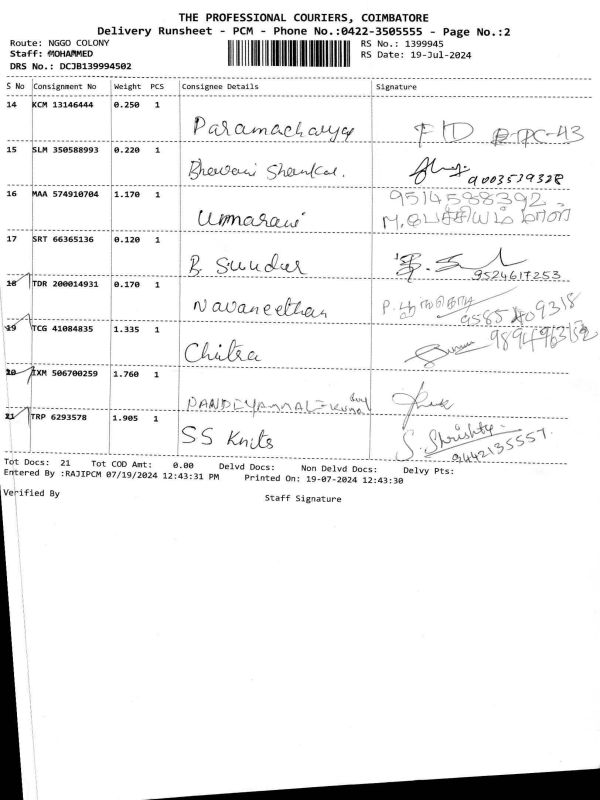 THE PROFESSIONAL COURIERS, COIMBATORE
Delivery Runsheet - PCM - Phone No.:0422-3505555 - Page No.:2
Route: NGGO COLONY RS No.: 1399945
Staff: MOHAMMED RS Date: 19-Jul-2024
DRS No.: DCJB139994502
S No Consignment No Weight PCS Consignee Details Signature
14 KCM 13146444 0.250 1
Paramacharya
15 SLM 350588993 0.220 1
Bhavani Shankar. 9003539328
16 MAA 574910704 1.170 1 9514588392
Umarani
17 SRT 66365136 0.120 1
B. Sundar 9524617253
18 TDR 200014931 0.170 1
Navaneethan 9585409318
19 TCG 41084835 1.335 1
Chitra
20 IXM 506700259 1.760 1
21 TRP 6293578 1.905 1
SS Knits S. Shrishty.
9442135557.
Tot Docs: 21 Tot COD Amt: 0.00 Delvd Docs: Non Delvd Docs: Delvy Pts:
Entered By :RAJIPCM 07/19/2024 12:43:31 PM Printed On: 19-07-2024 12:43:30
Verified By Staff Signature